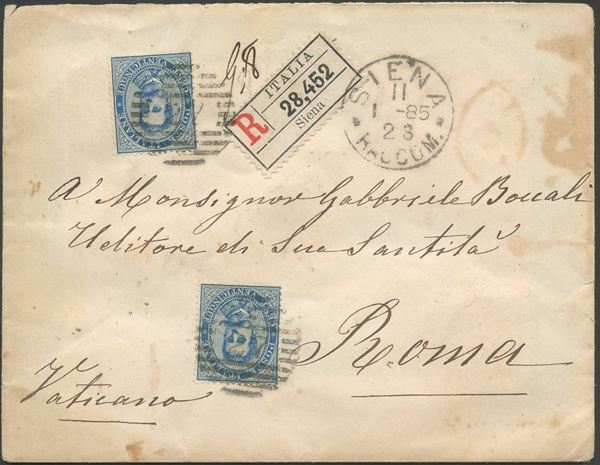 9.8
ITALIA
R 28.452
Siena
SIENA
11
1 -85
2 S
RACCOM.
A Monsignor Gabbriele Boccali
Uditore di Sua Santità
Roma
Vaticano